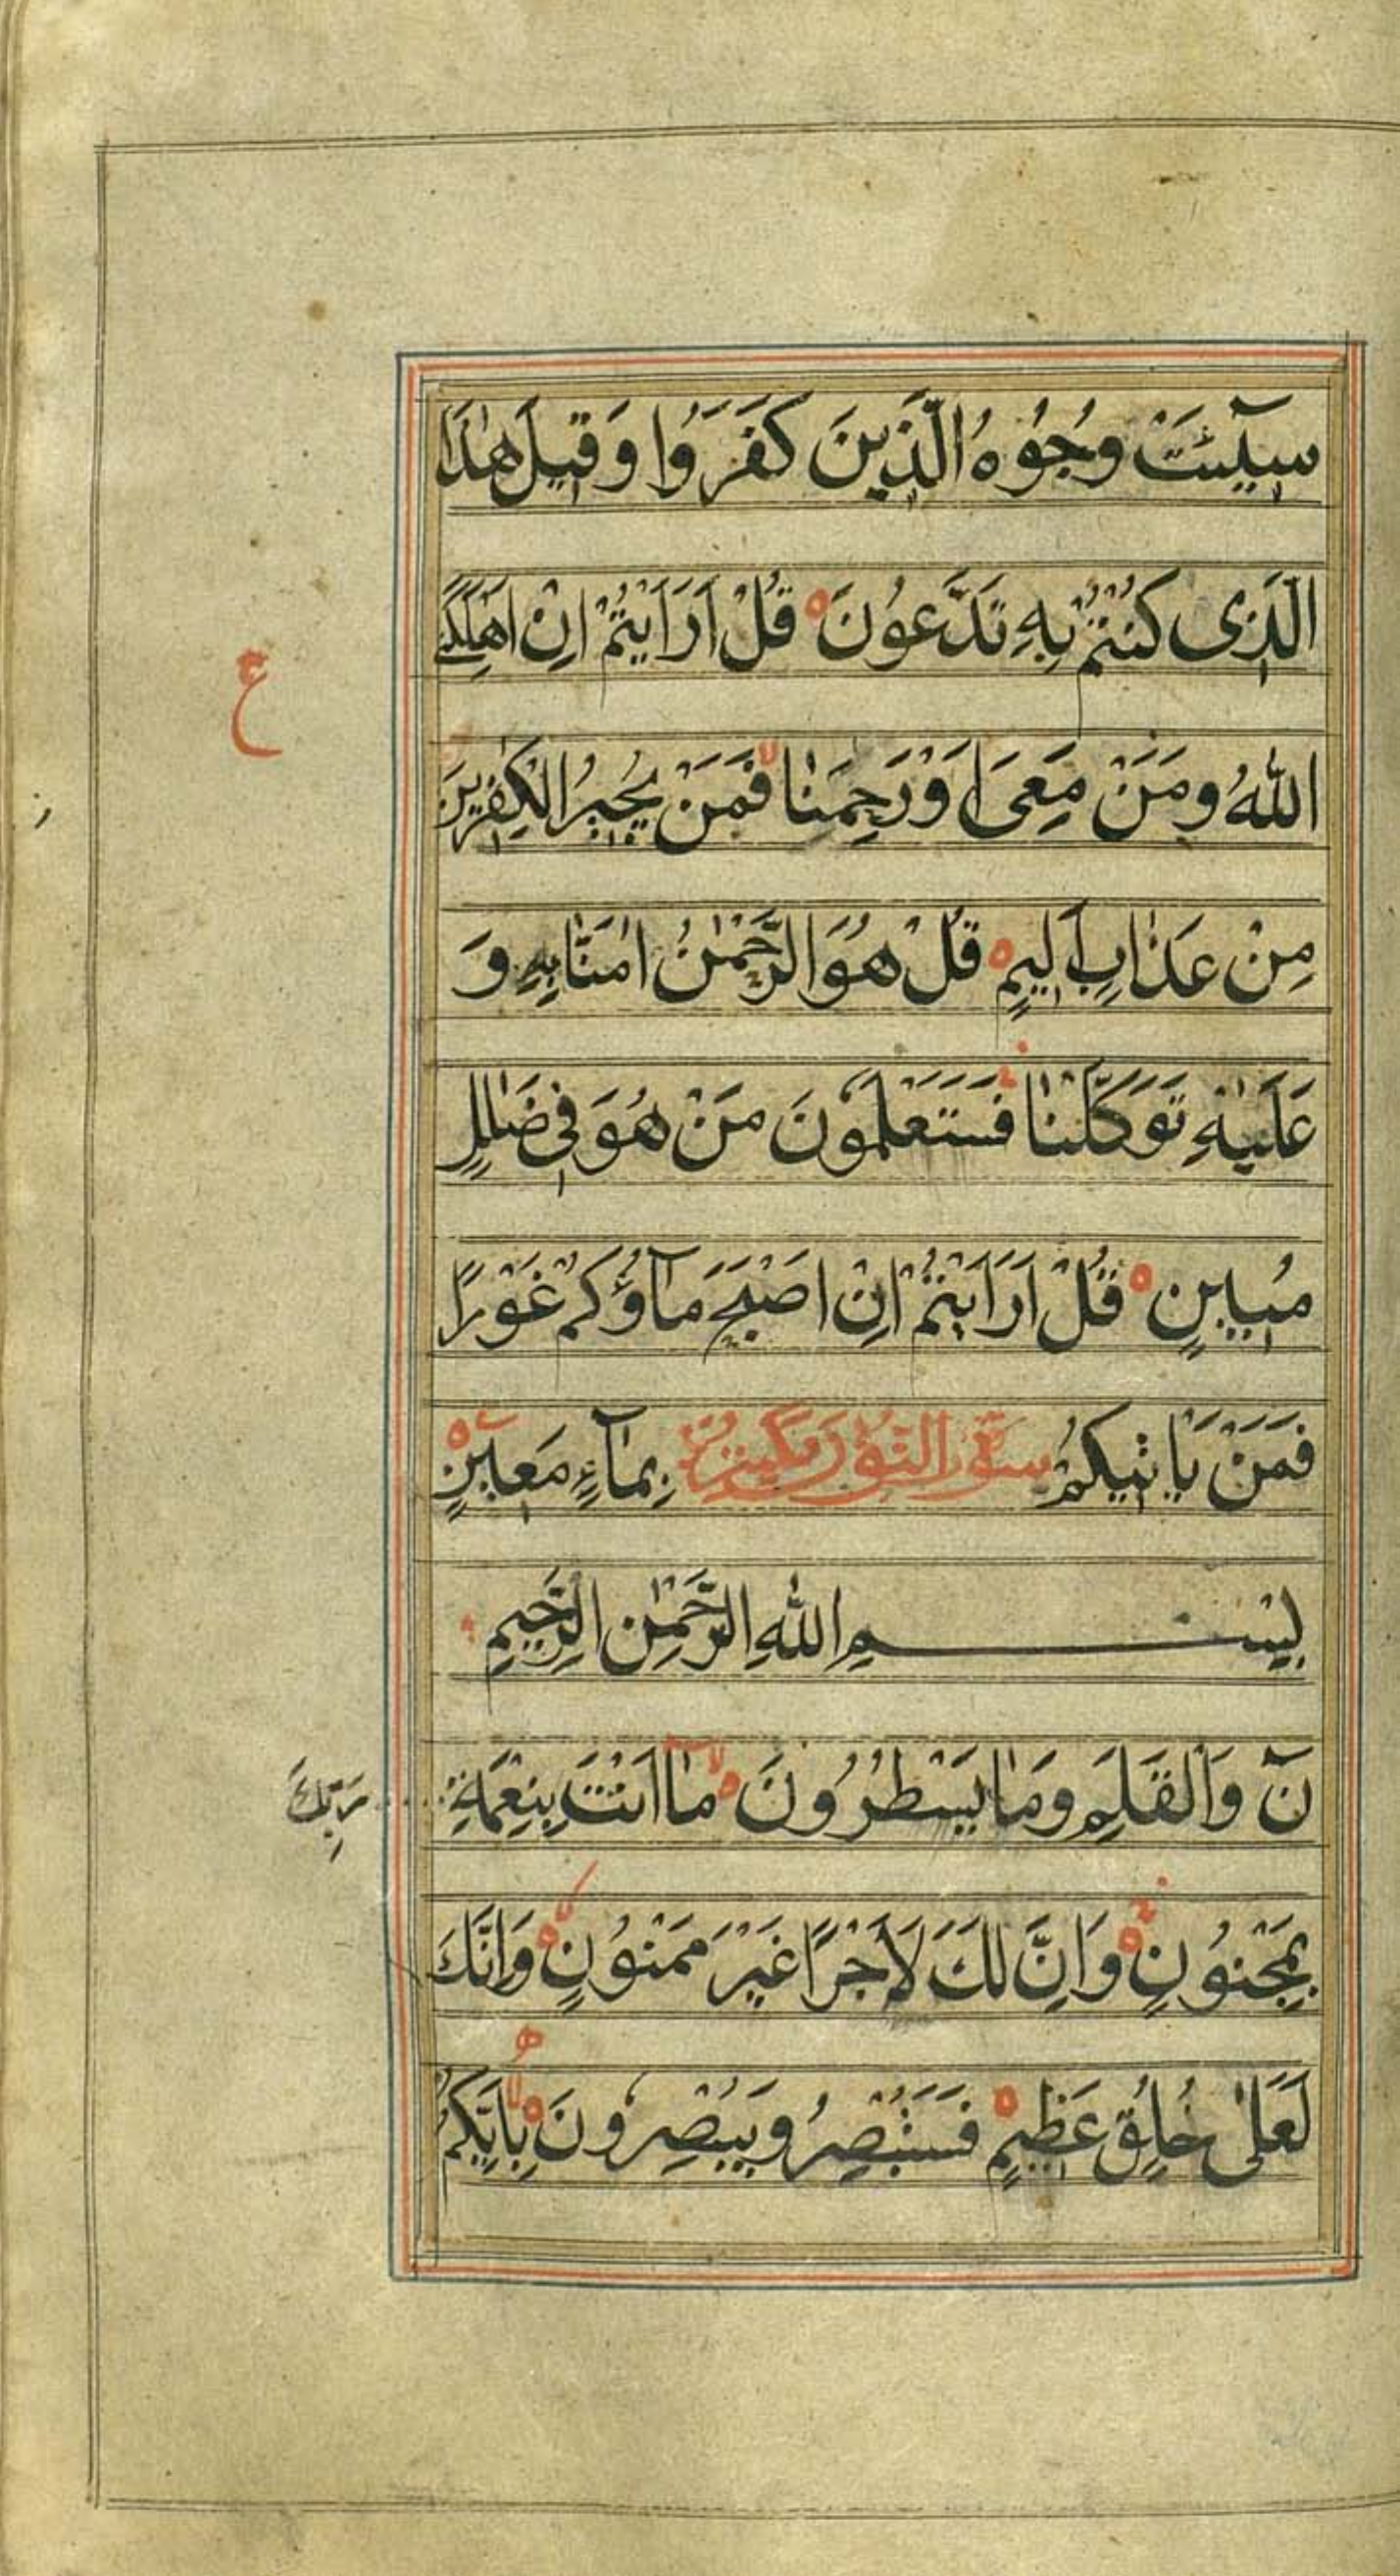 سِيٓئَتْ وُجُوْهُ الَّذِينَ كَفَرَوُا وَقِيلَ هٰذَا
الَّذِى كُنْتُمْ بِهِ تَدَّعُونَ ه قُلْ اَرَاَيْتُمْ اِنْ اَهْلَكَنِىَ
اللّٰهُ وَمَنْ مَعِىَ اَوْرَحِمَنٰا لا فَمَنْ يُجِيرُ الْكٰفِرِينَ
ع
مِنْ عَذٰابٍ اَلِيمٍ ه قُلْ هُوَ الرَّحْمٰنُ اٰمَنّٰا بِهِ وَ
عَلَيْهِ تَوَكَّلْنٰا فَسَتَعْلَمُونَ مَنْ هُوَ فِى ضَلٰلٍ
مُبِينٍ ه قُلْ اَرَاَيْتُمْ اِنْ اَصْبَحَ مٰآؤُكُمْ غَوْرًا
فَمَنْ يَاْتِيكُمْ بِمٰآءٍ مَعِينٍ ه
بِسْمِ اللّٰهِ الرَّحْمٰنِ الرَّحِيمِ
نٓ وَالْقَلَمِ وَمٰا يَسْطُرُونَ ه لا مٰا اَنْتَ بِنِعْمَةِ
رَبِّكَ
بِمَجْنُونٍ ه وَاِنَّ لَكَ لَاَجْرًا غَيْرَ مَمْنُونٍ ه وَاِنَّكَ
لَعَلىٰ خُلُقٍ عَظِيمٍ ه فَسَتُبْصِرُ وَيُبْصِرُونَ ه لا بِاَيِّكُمُ